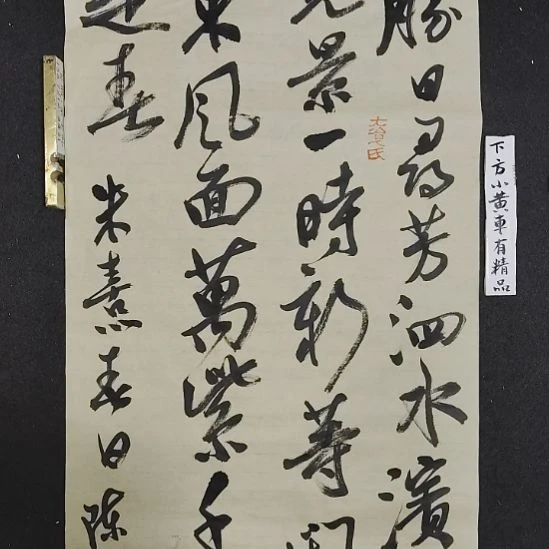 下方小黄車有精品
勝日尋芳泗水濱
光景一時新等
東風面萬紫千
是春
朱熹春日陳